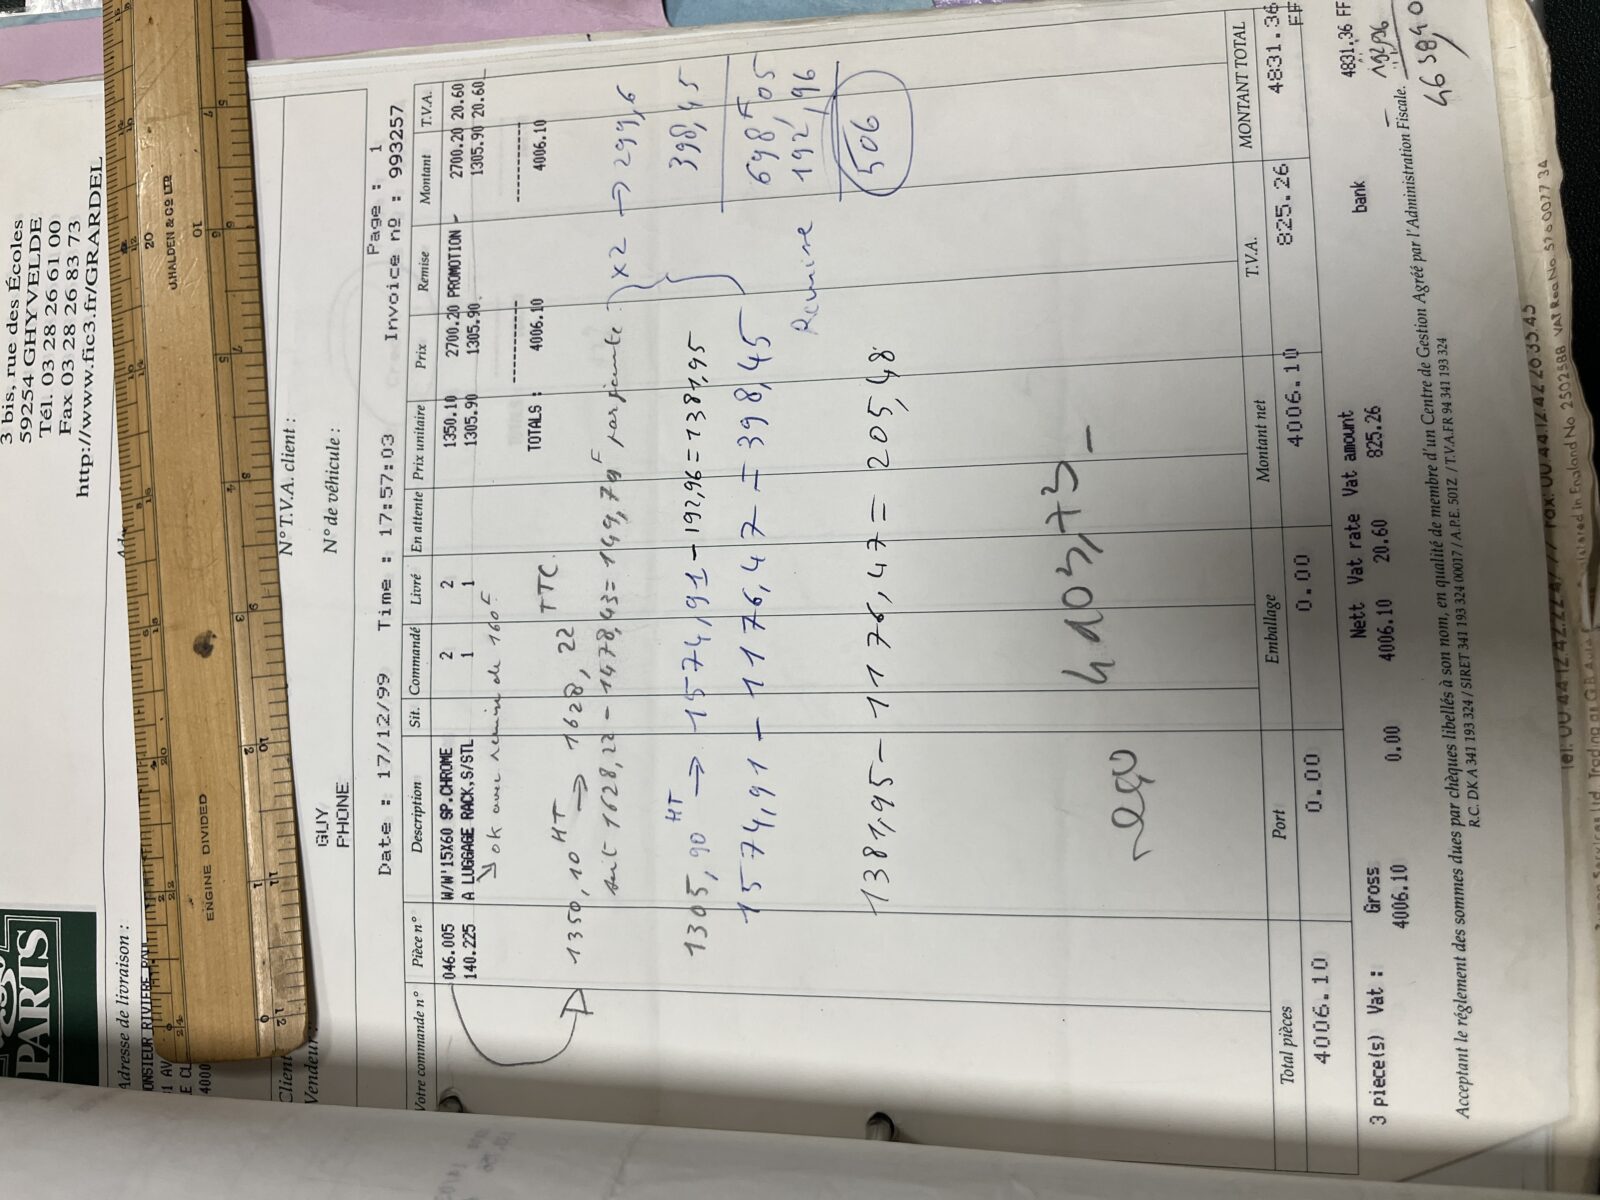 3 bis, rue des Écoles
59254 GHYVELDE
Tél. 03 28 26 61 00
Fax 03 28 26 83 73
http://www.fic3.fr/GRARDEL
PARTS
Adresse de livraison :
J.HALDEN & Co LTD
ENGINE DIVIDED
N° T.V.A. client :
N° de véhicule :
Client
Vendeur :
GUY
PHONE
Page : 1
Date : 17/12/99 Time : 17:57:03 Invoice nº : 993257
Votre commande n° Pièce n° Description Sit. Commandé Livré En attente Prix unitaire Prix Remise Montant T.V.A.
046.005 W/W'15X60 SP.CHROME 2 2 1350.10 2700.20 PROMOTION - 2700.20 20.60
140.225 A LUGGAGE RACK,S/STL 1 1 1305.90 1305.90 1305.90 20.60
ok avec remise de 160F
TOTALS : 4006.10 4006.10
1350,10 HT → 1628,22 TTC
soit 1628,22 - 1478,43 = 149,79F par jante } x2 → 299,6
1305,90 HT → 1574,91 - 192,96 = 1381,95
398,45
1574,91 - 1176,47 = 398,45
698F,05
Remise 192,96
506
1381,95 - 1176,47 = 205,48
4003,73 -
Total pièces Port Emballage Montant net T.V.A. MONTANT TOTAL
4006.10 0.00 0.00 4006.10 825.26 4831.36
FF
Gross Nett Vat rate Vat amount
3 piece(s) Vat : 4006.10 0.00 4006.10 20.60 825.26 bank 4831,36 FF
192,96
4638,40
Acceptant le règlement des sommes dues par chèques libellés à son nom, en qualité de membre d'un Centre de Gestion Agréé par l'Administration Fiscale.
R.C. DK A 341 193 324 / SIRET 341 193 324 00017 / A.P.E. 501Z / T.V.A. FR 94 341 193 324